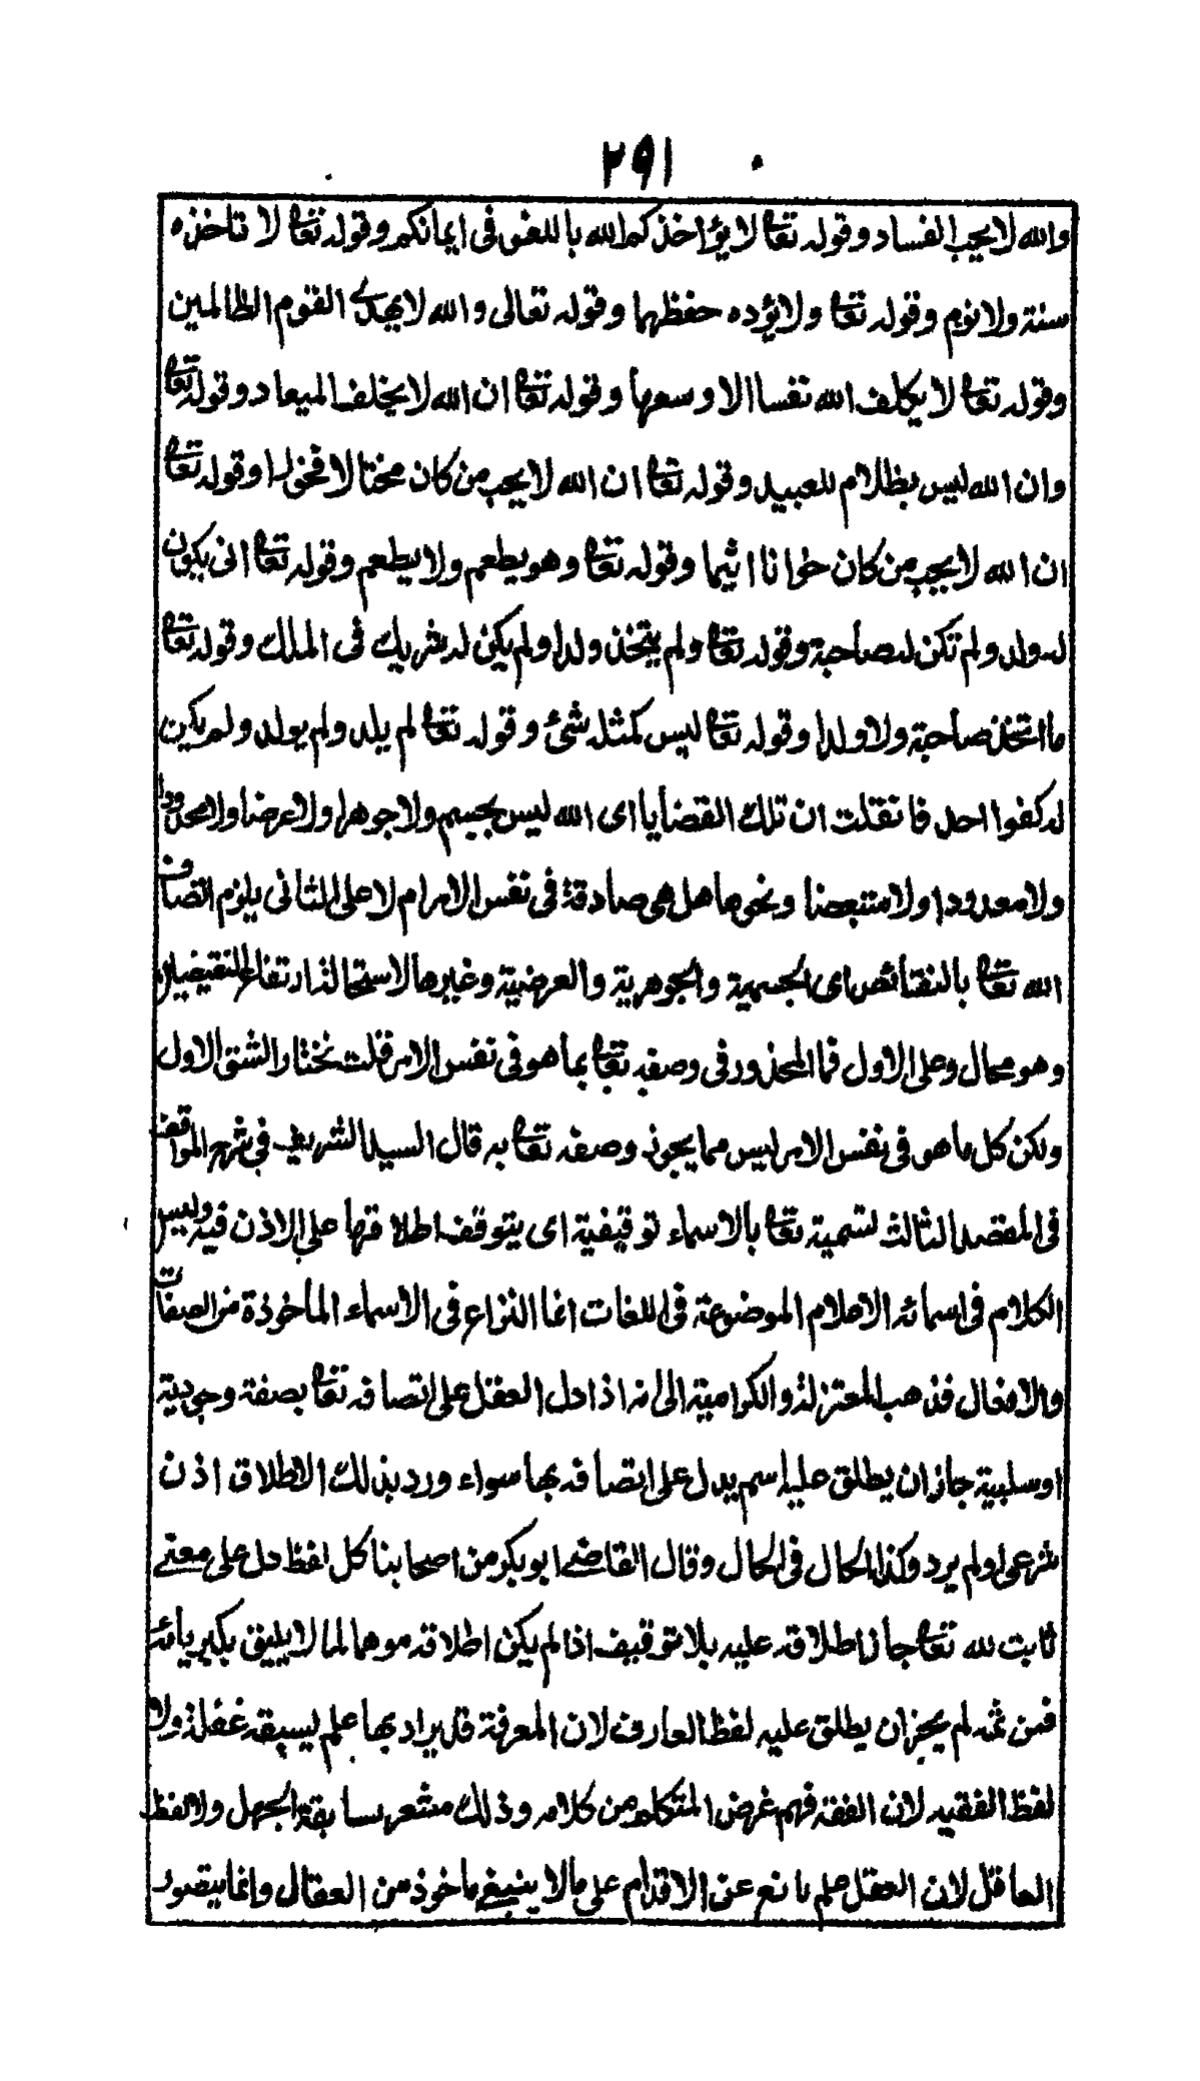 ٢٩١
والله لا يحب الفساد وقوله تعا لا يؤاخذكم الله باللغو فى ايمانكم وقوله تعا لا تاخذه
سنة ولا نوم وقوله تعا ولا يؤده حفظهما وقوله تعالى والله لا يهدى القوم الظالمين
وقوله تعا لا يكلف الله نفسا الا وسعها وقوله تعا ان الله لا يخلف الميعاد وقوله تعا
وان الله ليس بظلام للعبيد وقوله تعا ان الله لا يحب من كان مختالا فخورا وقوله تعا
ان الله لا يحب من كان خوانا اثيما وقوله تعا وهو يطعم ولا يطعم وقوله تعا انى يكون
له ولد ولم تكن له صاحبة وقوله تعا ولم يتخذ ولدا ولم يكن له شريك فى الملك وقوله تعا
ما اتخذ صاحبة ولا ولدا وقوله تعا ليس كمثله شئ وقوله تعا لم يلد ولم يولد ولم يكن
له كفوا احد فانقلت ان تلك القضايا اى الله ليس بجسم ولا جوهرا ولا عرضا ولا محدودا
ولا معدودا ولا متبعضا ونحوها هل هى صادقة فى نفس الامر ام لا على الثانى يلزم اتصاف
الله تعا بالنقائص اى الجسمية والجوهرية والعرضية وغيرها لاستحالة ارتفاع النقيضين
وهو محال وعلى الاول فما المحذور فى وصفه تعا بما هو فى نفس الامر قلت نختار الشق الاول
ولكن كل ما هو فى نفس الامر ليس مما يجوز وصفه تعا به قال السيد الشريف فى شرح المواقف
فى المقصد الثالث تسمية تعا بالاسماء توقيفية اى يتوقف اطلاقها على الاذن فيه وليس
الكلام فى اسمائه الاعلام الموضوعة فى اللغات انما النزاع فى الاسماء الماخوذة من الصفات
والافعال فذهب المعتزلة والكرامية الى انه اذا دل العقل على اتصافه تعا بصفة وجودية
او سلبية جاز ان يطلق عليه اسم يدل على اتصافه بها سواء ورد بذلك الاطلاق اذن
شرعى او لم يرد وكذا الحال فى الحال وقال القاضى ابو بكر من اصحابنا كل لفظ دل على معنى
ثابت لله تعا جاز اطلاقه عليه بلا توقيف اذا لم يكن اطلاقه موهما لما لا يليق بكبريائه
فمن ثمه لم يجز ان يطلق عليه لفظ العارف لان المعرفة قد يراد بها علم ليسبقه غفلة ولا
لفظ الفقيه لان الفقه فهم غرض المتكلم من كلامه وذلك مشعر بسابقة الجهل ولا لفظ
العاقل لان العقل علم مانع عن الاقدام على ما لا ينبغى ماخوذ من العقال وانما يتصور